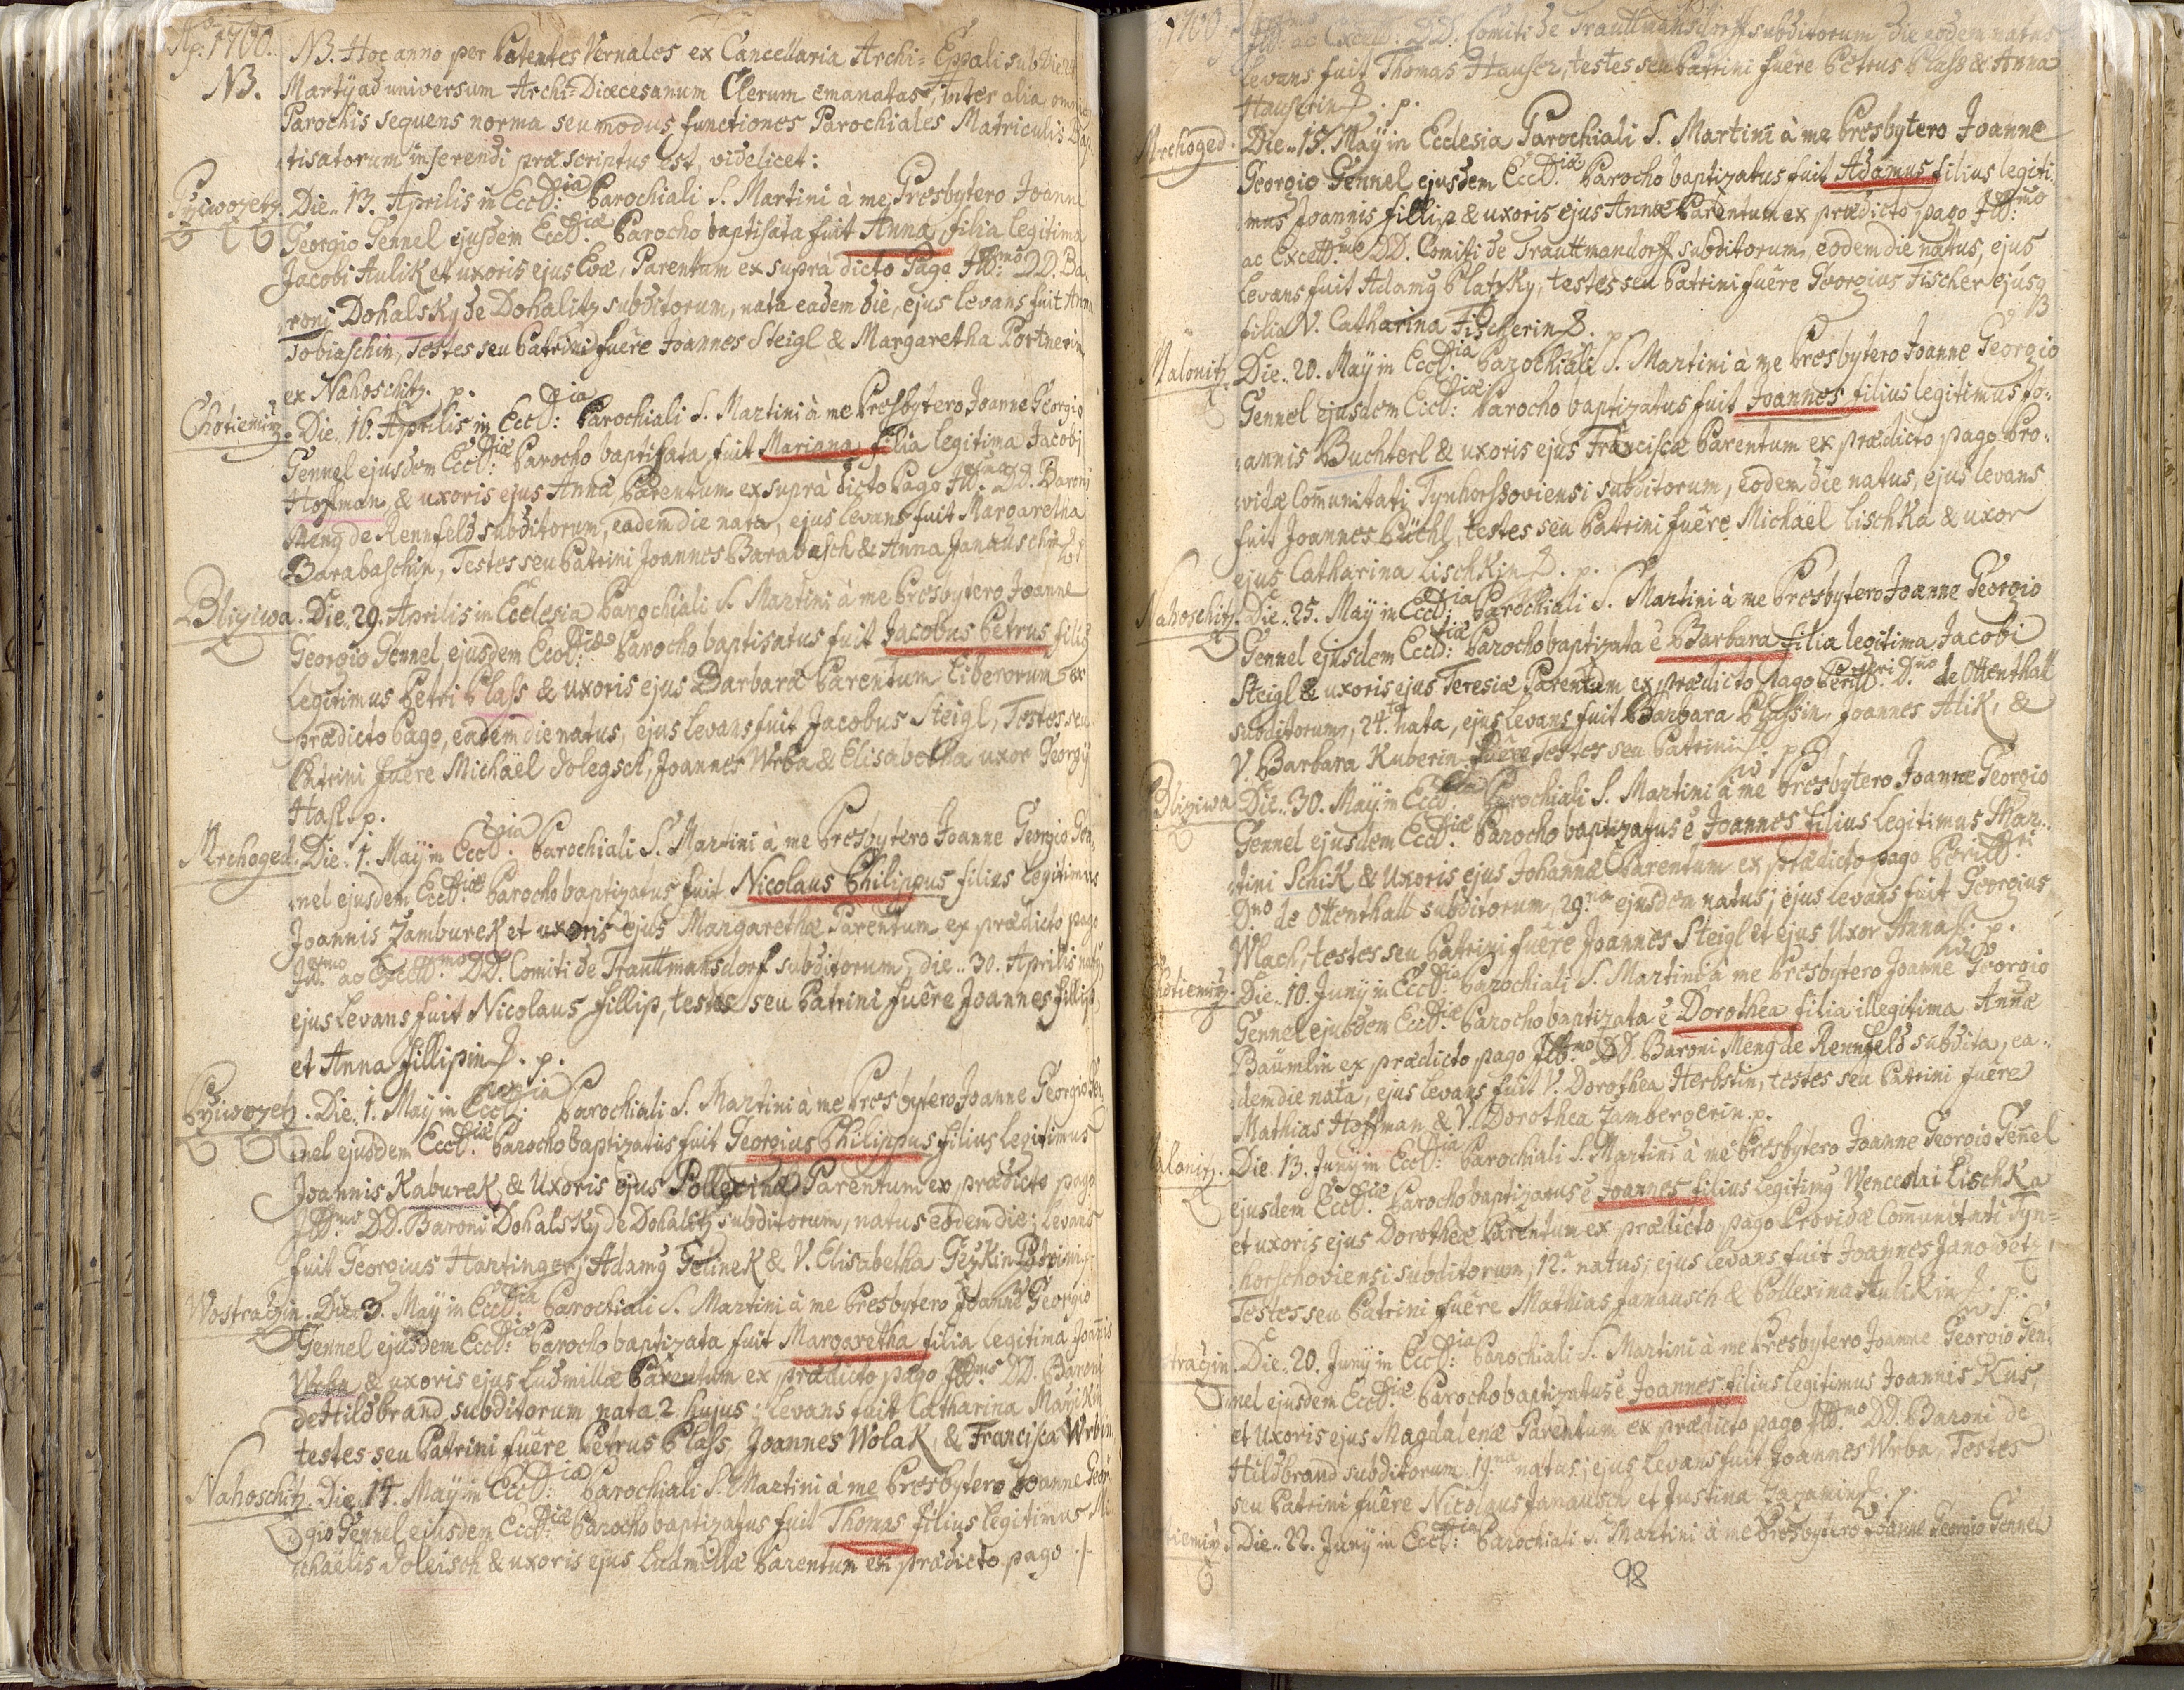 Aõ: 1760. NB. Hoc anno per Patentes Vernales ex Cancellaria Archi-Eppali sub Die
NB. Martij ad universum Archi-Diœcesanum Clerum emanatas, inter alia omnibus
Parochis sequens norma seu modus functiones Parochiales Matriculis Bap-
tisatorum inserendi præscriptus est, videlicet:
Przivozetz. Die 13. Aprilis in Eccl:ia Parochiali S. Martini à me Presbytero Joanne
Georgio Gennel ejusdem Eccl:iæ Parocho baptisata fuit Anna filia legitima
Jacobi Aulik et uxoris ejus Evæ, Parentum ex supra dicto Pago Ill:mo DD. Ba-
roni Dohalsky de Dohalitz subditorum, nata eadem die, ejus levans fuit Anna
Tobiaschin, Testes seu Patrini fuêre Joannes Steigl & Margaretha Portnerin
ex Nahoschitz. p.
Chotiemirz. Die 16. Aprilis in Eccl:ia Parochiali S. Martini à me Presbytero Joanne Georgio
Gennel ejusdem Eccl:iæ Parocho baptisata fuit Mariana filia legitima Jacobi
Hofman, & uxoris ejus Annæ Parentum ex suprà dicto Pago Ill:mo DD. Baroni
Meng de Rennfeld subditorum, eadem die nata, ejus levans fuit Margaretha
Barabaschin, Testes seu Patrini Joannes Barabasch & Anna Janauschin
Bliziwa. Die 29. Aprilis in Ecclesia Parochiali S. Martini à me Presbytero Joanne
Georgio Gennel ejusdem Eccl:iæ Parocho baptisatus fuit Jacobus Petrus filius
legitimus Petri Plass & uxoris ejus Barbaræ Parentum liberorum ex
prædicto Pago, eadem die natus, ejus levans fuit Jacobus Steigl, Testes seu
Patrini fuêre Michaël Dolegsch, Joannes Wrba & Elisabetha uxor Georgij
Hasl. p.
Mrchoged. Die 1. Maij in Eccl:ia Parochiali S. Martini à me Presbytero Joanne Georgio Gen-
nel ejusdem Eccl:iæ Parocho baptizatus fuit Nicolaus Philippus filius legitimus
Joannis Zamburek et uxoris ejus Margarethæ Parentum ex prædicto pago
Ill:mo ac Excell:mo DD. Comiti de Trauttmansdorf subditorum, die 30. Aprilis natus,
ejus levans fuit Nicolaus Fillip, testes seu Patrini fuêre Joannes Fillip,
et Anna Fillipin. p.
Przivozetz. Die 1. Maij in Eccl:ia Parochiali S. Martini à me Presbytero Joanne Georgio Gen-
nel ejusdem Eccl:iæ Parocho baptizatus fuit Georgius Philippus filius legitimus
Joannis Kaburek, & Uxoris ejus Pollexinæ Parentum ex prædicto pago
Ill:mo DD. Baroni Dohalsky de Dohalitz subditorum, natus eodem die; levans
fuit Georgius Hartinger; Adamus Gelinek & V. Elisabetha Geykin Patrini
Wostraczin. Die 3. Maij in Eccl:ia Parochiali S. Martini à me Presbytero Joanne Georgio
Gennel ejusdem Eccl:iæ Parocho baptizata fuit Margaretha filia legitima Joannis
Wrba & uxoris ejus Ludmillæ Parentum ex prædicto pago Ill:mo DD. Baroni
de Hildbrand subditorum nata 2. hujus; levans fuit Catharina
testes seu Patrini fuêre Petrus Plass, Joannes Wolak, & Francisca Wrbin
Nahoschitz. Die 14. Maij in Eccl:ia Parochiali S. Martini à me Presbytero Joanne Geor-
gio Gennel ejusdem Eccl:iæ Parocho baptizatus fuit Thomas filius legitimus Mi-
chaëlis Doleisch & uxoris ejus Ludmillæ Parentum ex prædicto pago
1760. Ill:mo ac Excell: DD. Comiti de Trauttmansdorff subditorum, die eodem natus
levans fuit Thomas Hauser, testes seu Patrini fuêre Petrus Plass & Anna
Hauserin. p.
Mrchoged. Die 15. Maij in Ecclesia Parochiali S. Martini à me Presbytero Joanne
Georgio Gennel ejusdem Eccl:iæ Parocho baptizatus fuit Adamus filius legiti-
mus Joannis Fillip & uxoris ejus Annæ Parentum ex prædicto pago Ill:mo
ac Excell:mo DD. Comiti de Trauttmandorff subditorum, eodem die natus, ejus
levans fuit Adamus Platzky, testes seu Patrini fuêre Georgius Fischer ejusq
filia V. Catharina Fischerin. p.
Malonitz. Die 20. Maij in Eccl:ia Parochiali S. Martini à me Presbytero Joanne Georgio
Gennel ejusdem Eccl:iæ Parocho baptizatus fuit Joannes filius legitimus Jo-
annis Buchterl & uxoris ejus Franciscæ Parentum ex prædicto pago Pro-
vidæ Com̄unitati Tynhorssoviensi subditorum, eodem die natus, ejus levans
fuit Joannes Püchl, testes seu Patrini fuêre Michaël Lischka & uxor
ejus Catharina Lischkin. p.
Nahoschitz. Die 25. Maij in Eccl:ia Parochiali S. Martini à me Presbytero Joanne Georgio
Gennel ejusdem Eccl:iæ Parocho baptizata ē Barbara filia legitima Jacobi
Steigl & uxoris ejus Teresiæ Parentum ex prædicto pago Perill:ri D:no de Ottenthall
subditorum, 24.ta nata, ejus levans fuit Barbara Plassin, Joannes Alik, &
V. Barbara Kuberin fuêre testes seu Patrini. p.
Bliziwa. Die 30. Maij in Eccl:ia Parochiali S. Martini à me Presbytero Joanne Georgio
Gennel ejusdem Eccl:iæ Parocho baptizatus ē Joannes filius legitimus Mar-
tini Schik & Uxoris ejus Johannæ Parentum ex prædicto pago Perill:ri
D:no de Ottenthall subditorum, 29.na ejusdem natus; ejus levans fuit Georgius
Wlach, testes seu Patrini fuêre Joannes Steigl et ejus Uxor Anna. p.
Chotiemirz. Die 10. Junij in Eccl:ia Parochiali S. Martini à me Presbytero Joanne Georgio
Gennel ejusdem Eccl:iæ Parocho baptizata ē Dorothea filia illegitima Annæ
Baümlin ex prædicto pago Ill:mo DD. Baroni Meng de Rennfeld subdita, ea-
dem die nata, ejus levans fuit V. Dorothea Herbstin, testes seu Patrini fuêre
Mathias Hoffman & V. Dorothea Zambergerin. p.
Malonitz. Die 13. Junij in Eccl:ia Parochiali S. Martini à me Presbytero Joanne Georgio Gen̄el
ejusdem Eccl:iæ Parocho baptizatus ē Joannes filius legitimus Wenceslai Lischka
et uxoris ejus Dorotheæ Parentum ex prædicto pago Providæ Com̄unitati Tyn-
horschoviensi subditorum, 12. natus; ejus levans fuit Joannes Janowetz,
Testes seu Patrini fuêre Mathias Janausch & Pollexina Aulikin. p.
traczin. Die 20. Junij in Eccl:ia Parochiali S. Martini à me Presbytero Joanne Georgio Gen-
nel ejusdem Eccl:iæ Parocho baptizatus ē Joannes filius legitimus Joannis Kus,
et Uxoris ejus Magdalenæ Parentum ex prædicto pago Ill:mo DD. Baroni de
Hildbrand subditorum 19.na natus; ejus levans fuit Joannes Wrba, Testes
seu Patrini fuêre Nicolaus Janausch et Justina. p.
tiemirz. Die 22. Junij in Eccl:ia Parochiali S. Martini à me Presbytero Joanne Georgio Gennel
98